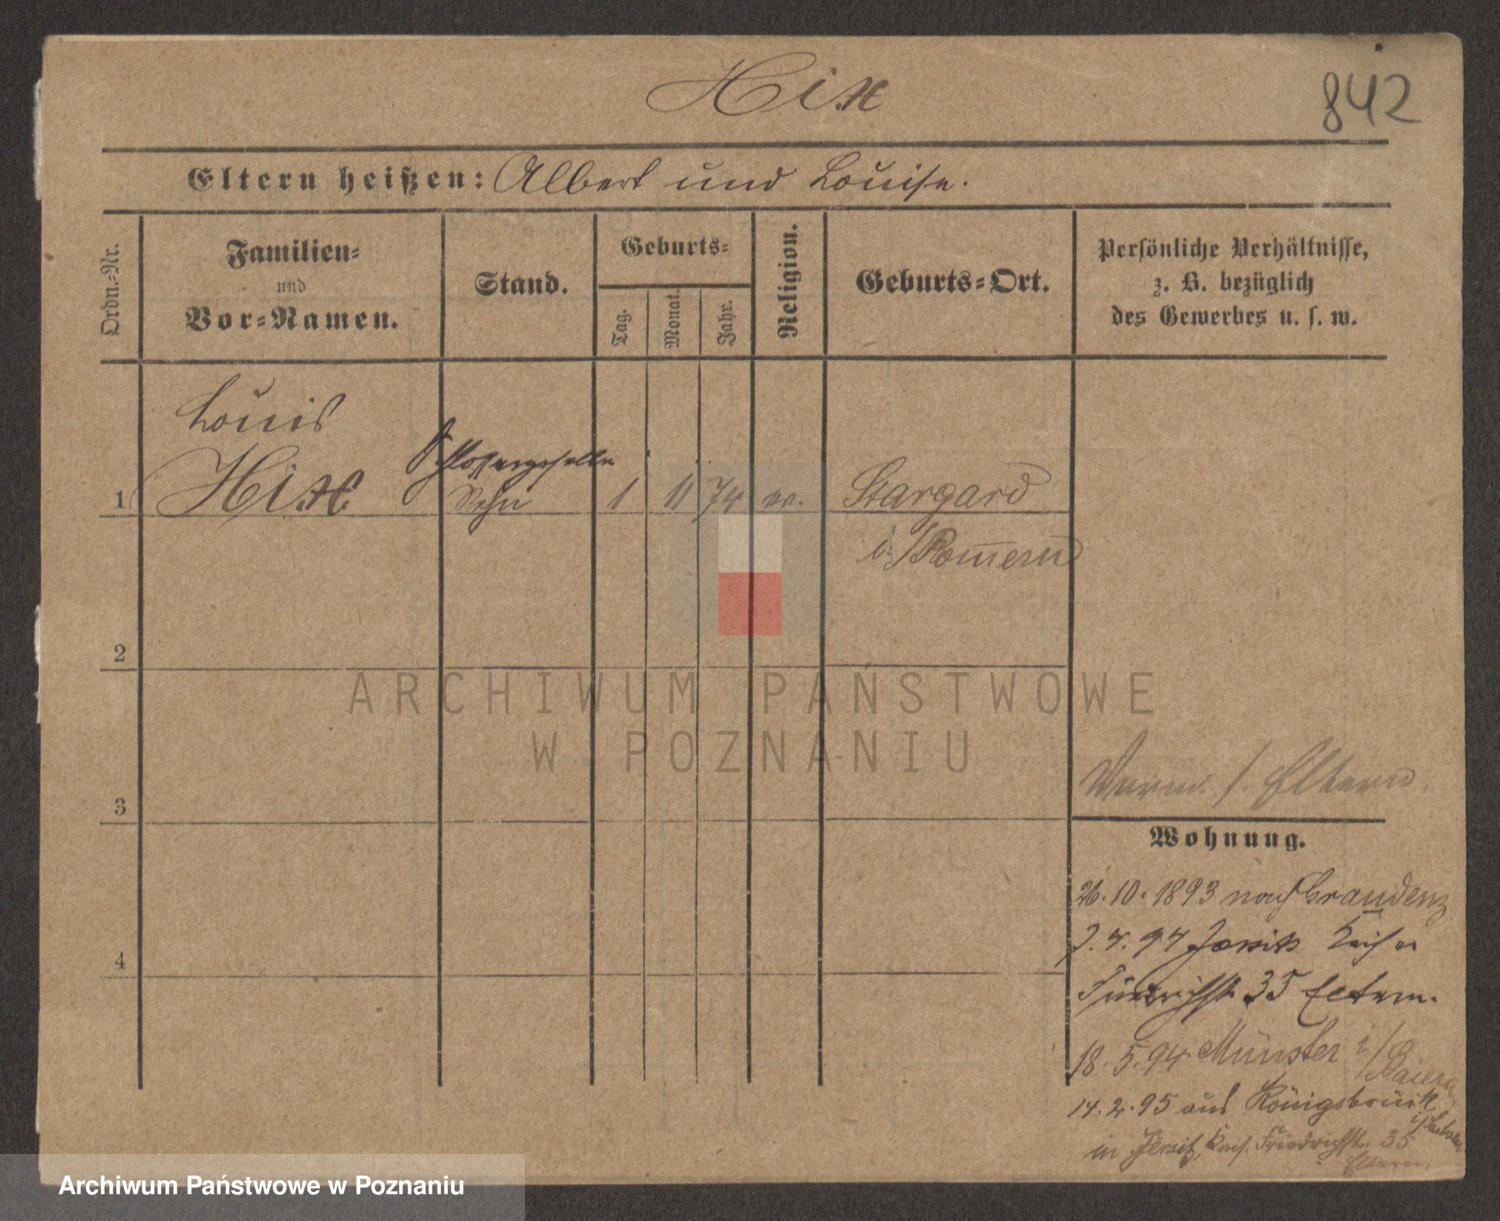 Hix
842
Eltern heißen: Albert und Louise.
Ordn.-Nr.
Familien- und Vor-Namen.
Stand.
Geburts-
Tag.
Monat.
Jahr.
Religion.
Geburts-Ort.
Persönliche Verhältnisse,
z. B. bezüglich
des Gewerbes u. s. w.
Louis
Schlossergeselle
1 Hix Sohn 1 11 74 ev. Stargard
i/Pom̅ern
2
ARCHIWUM PAŃSTWOWE
W POZNANIU
3
4
s. Eltern.
Wohnung.
26.10.1893 nach Graudenz
94 Jersitz
35 Eltern.
18.5.94 Münster i/Baiern
14.2.95 aus Königsbrück
in Jersitz, Kais. Friedrichstr. 35
Eltern.
Archiwum Państwowe w Poznaniu